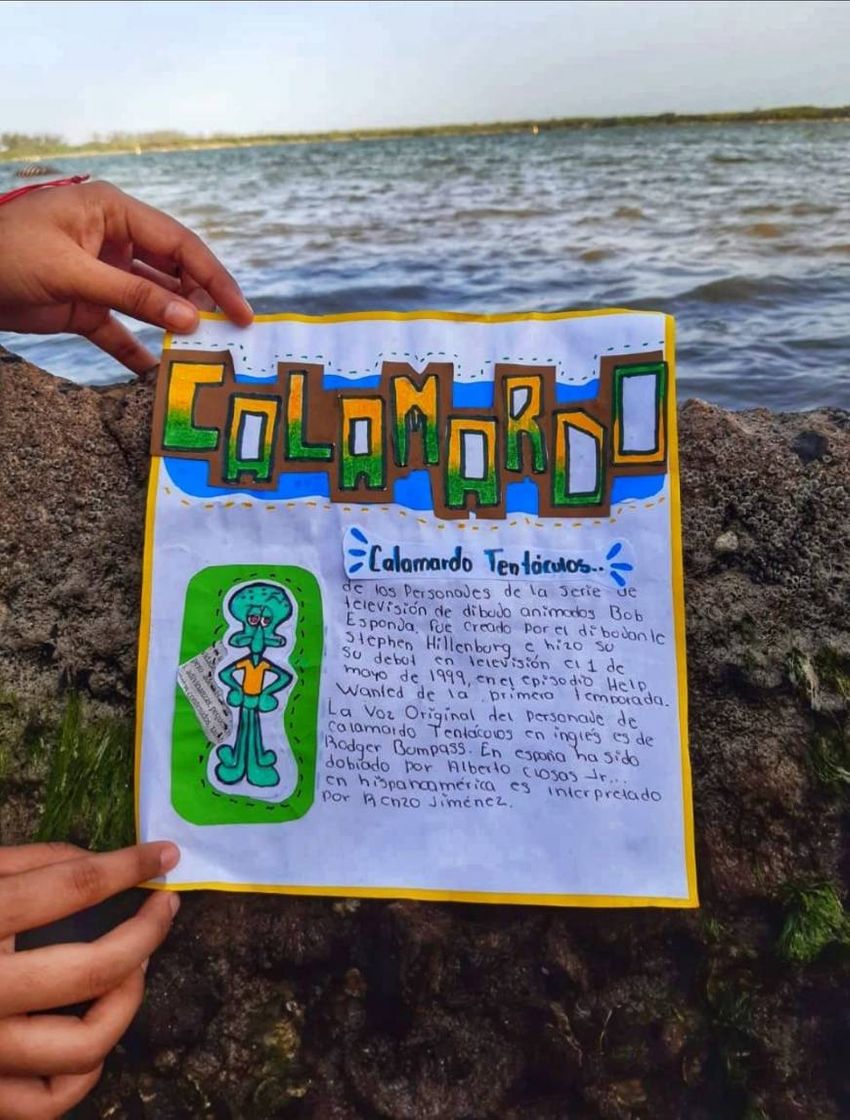 CALAMARDO
Calamardo Tentáculos..
de los Personajes de la serie de
televisión de dibujo animados Bob
Esponja, fue creado por el dibujante
Stephen Hillenburg e hizo su
su debut en televisión el 1 de
mayo de 1999, en el episodio Help
Wanted de la primera temporada.
La Voz Original del personaje de
Calamardo Tentáculos en inglés es de
Rodger Bumpass. En españa ha sido
doblado por Alberto Closas Jr...
en hispanoamérica es interpretado
por Renzo Jiménez.